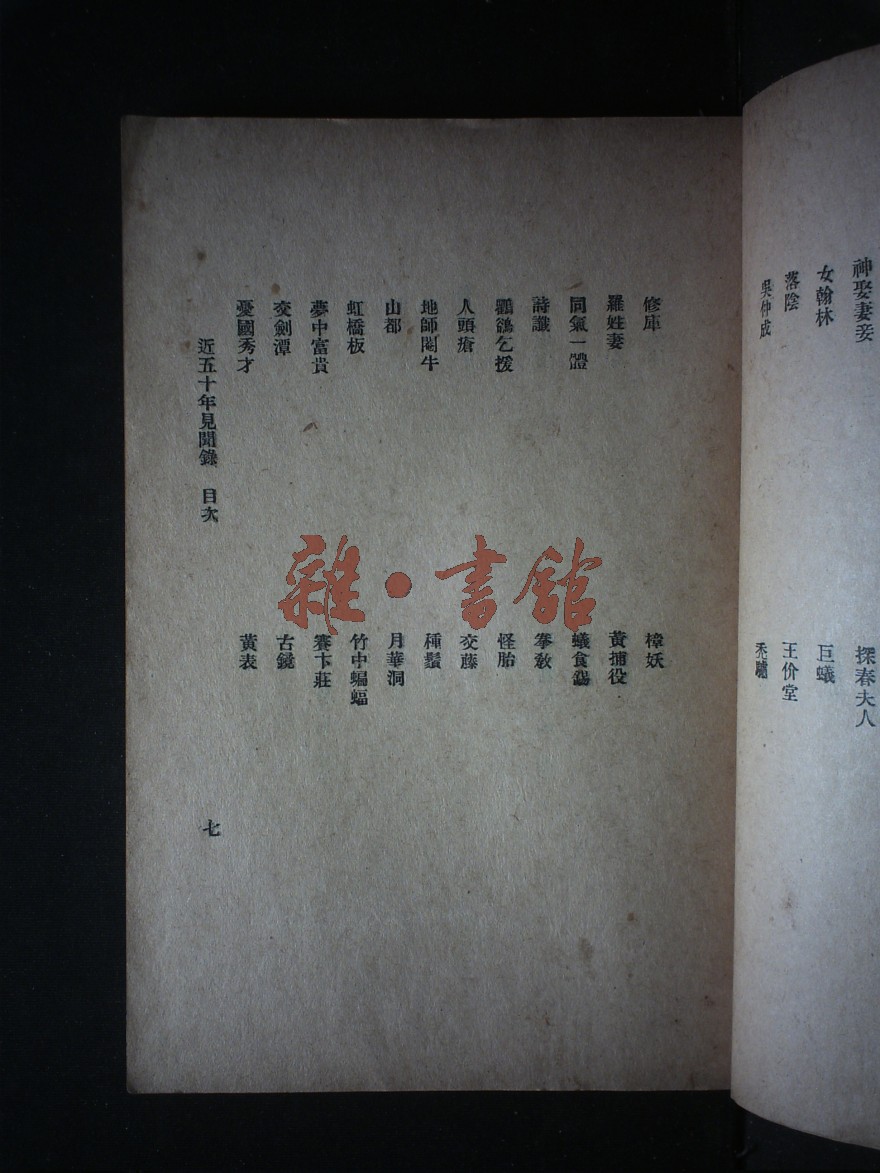 神娶妻妾　探春夫人
女翰林　巨蟻
落陰　王价堂
吳仲成　禿驢
修庫　樟妖
羅姓妻　黃捕役
同氣一體　蟻食
詩讖　拳敎
鸜鵒乞援　怪胎
人頭瘡　交藤
地師鬭牛　種鬚
山都　月華洞
虹橋板　竹中蝙蝠
夢中富貴　賽卞莊
交劍潭　古鏡
憂國秀才　黃表
近五十年見聞錄　目次　七
雜·書館